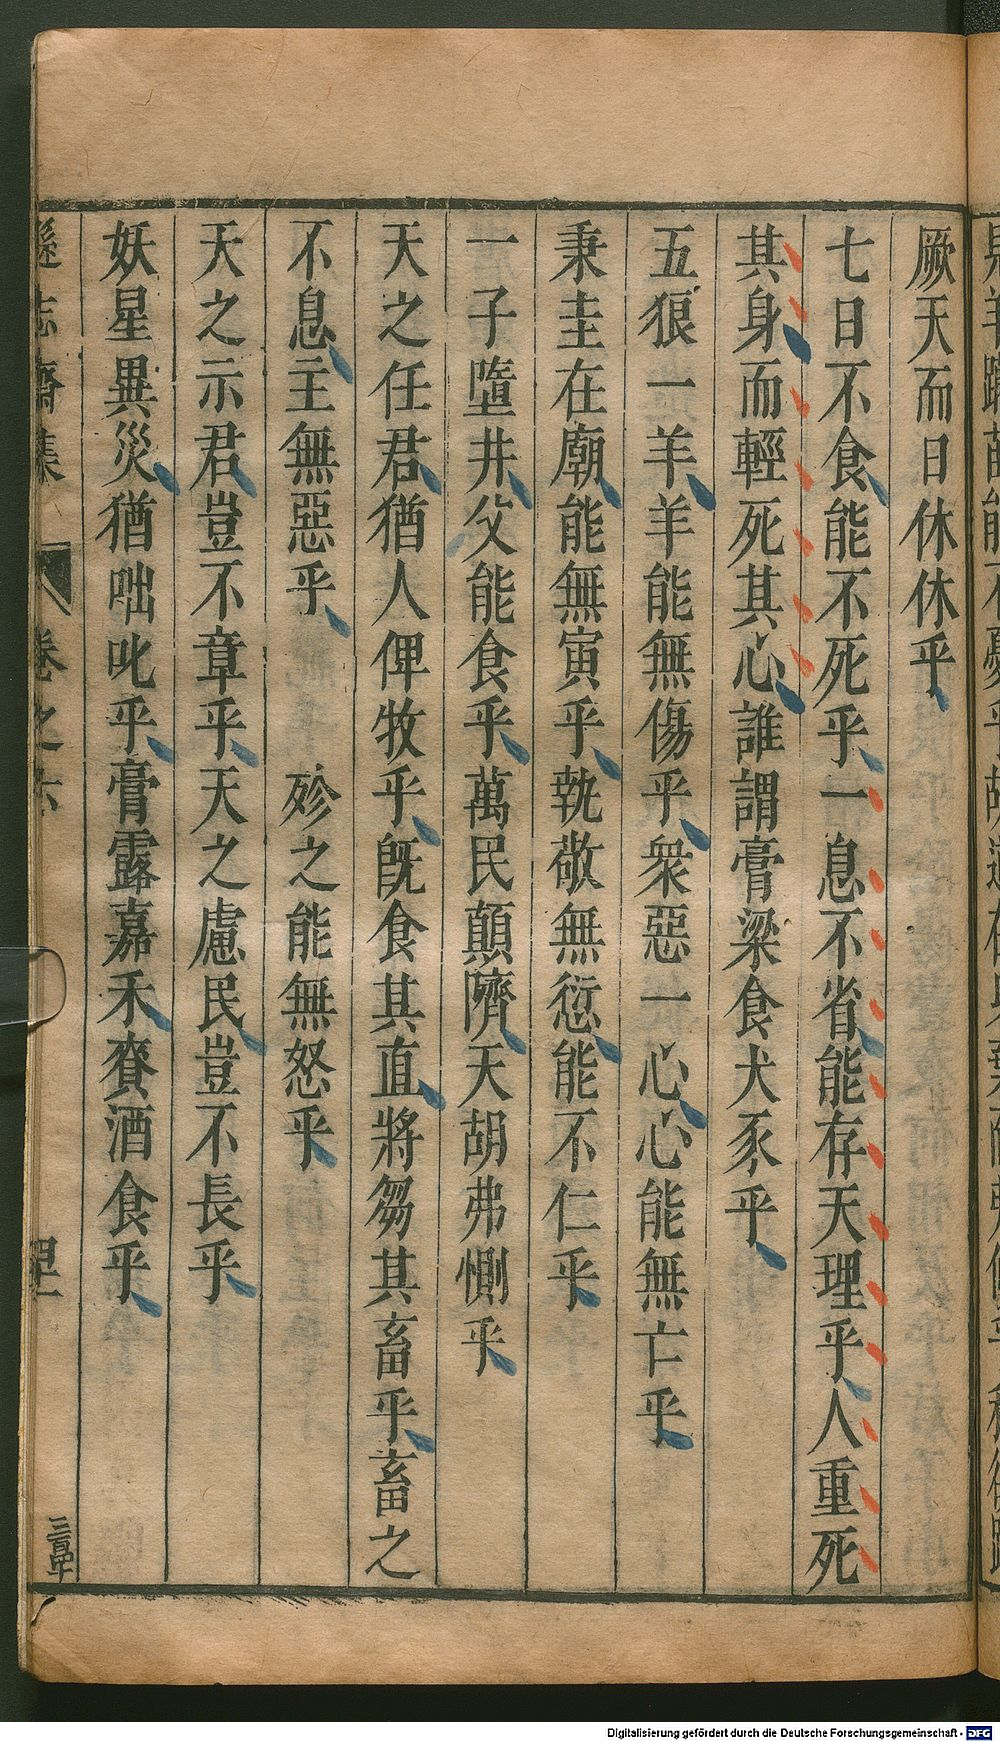 厥天而日休休乎
七日不食能不死乎一息不省能存天理乎人重死
其身而輕死其心誰謂膏粱食犬豕乎
五狼一羊羊能無傷乎衆惡一心心能無亡乎
秉圭在廟能無寅乎執敬無愆能不仁乎
一子墮井父能食乎萬民顛隮天胡弗惻乎
天之任君猶人俾牧乎旣食其直將芻其畜乎畜之
不息主無惡乎 殄之能無怒乎
天之示君豈不章乎天之慮民豈不長乎
妖星異災猶咄叱乎膏露嘉禾賚酒食乎
遜志齋集 卷之六
Digitalisierung gefördert durch die Deutsche Forschungsgemeinschaft - DFG